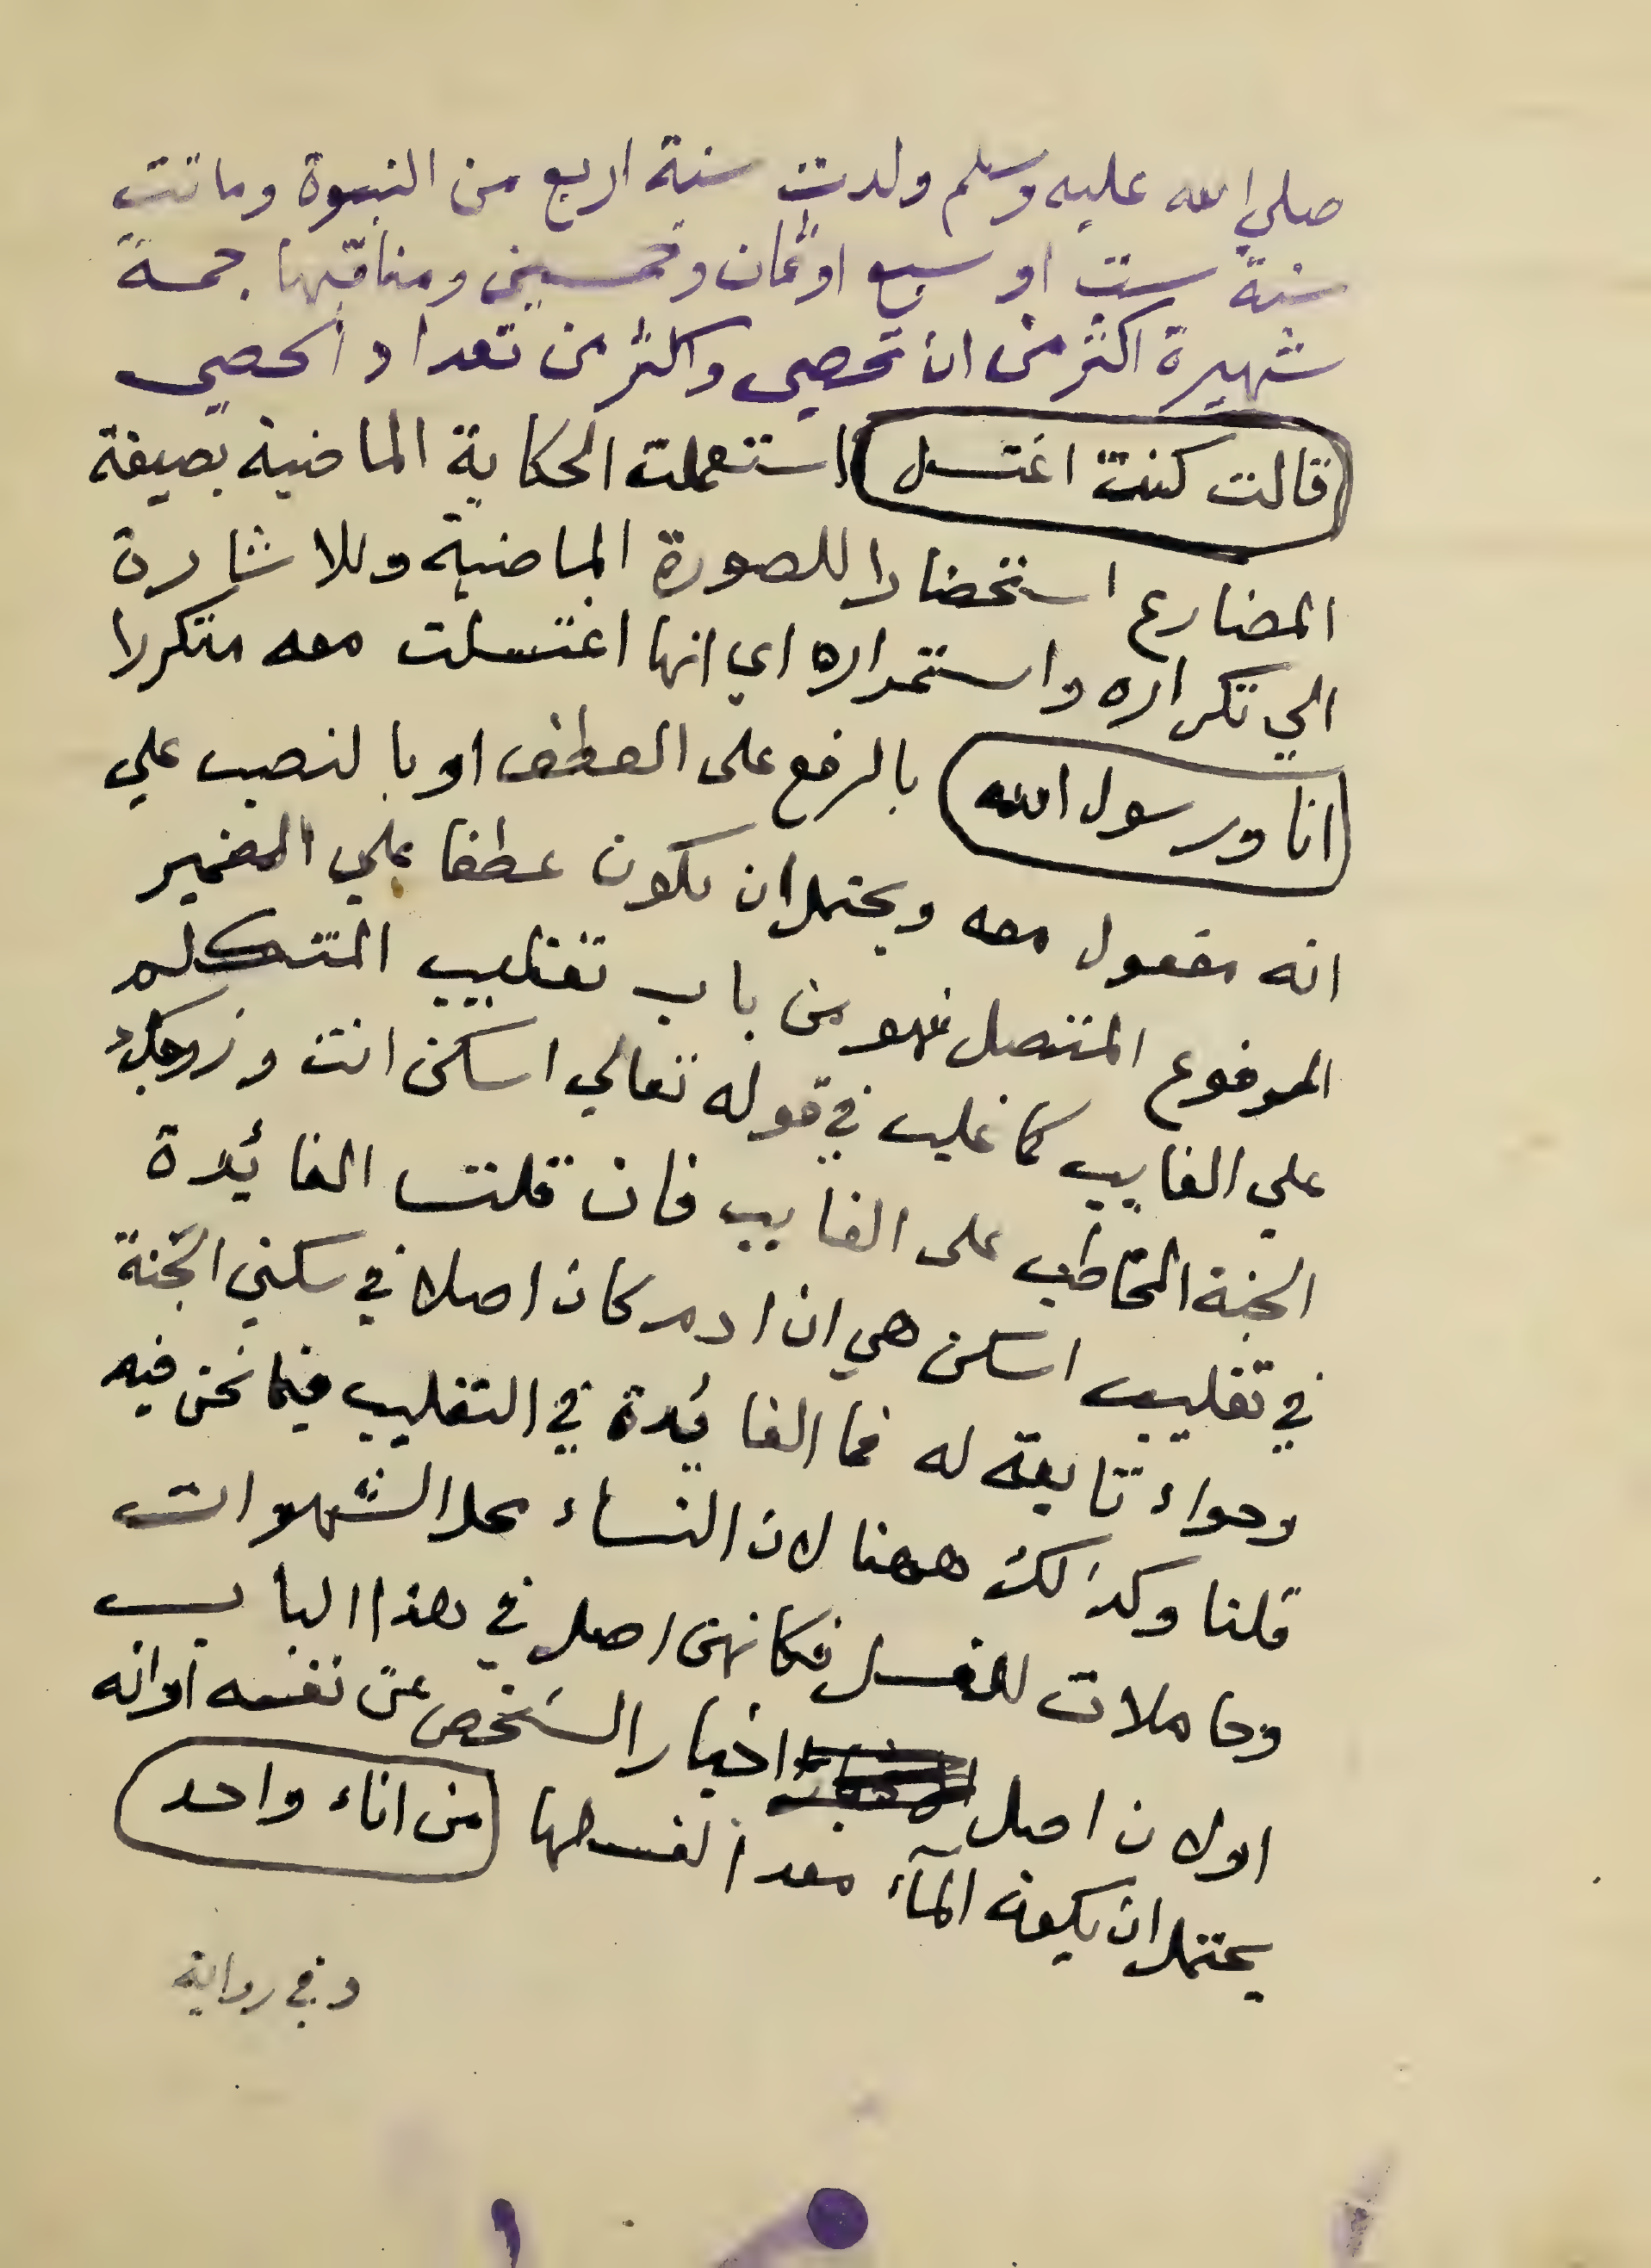 صلي الله عليه وسلم ولدت سنة اربع من النبوة وماتت
سنة ست او سبع اوثمان وخمسين ومناقبها جمة
شهيرة اكثر من ان تحصي واكثر من تعداد الحصي
قالت كنت اغتسل استعملت الحكاية الماضية بصيغة
المضارع استحضارا للصورة الماضية وللاشارة
الي تكراره واستمراره اي انها اغتسلت معه متكررا
انا ورسول الله بالرفع على العطف او بالنصب علي
انه مفعول معه ويحتمل ان يكون عطفا علي الضمير
المرفوع المتصل فهو من باب تغليب المتكلم
علي الغايب كما غلب في قوله تعالي اسكن انت وزوجك
الجنة المخاطب على الغايب فان قلت الفائدة
في تغليب اسكن هي ان ادم كان اصلا في سكني الجنة
وحواء تابعة له فما الفائدة في التغليب فيما نحن فيه
قلنا وكذلك ههنا لان النساء محل الشهوات
وحاملات للغسل فكانهن اصل في هذا الباب
اولان اصل اخبار الشخص عن نفسه اوانه
يحتمل ان يكون المآء معدا لغسلها من اناء واحد
وفي رواية